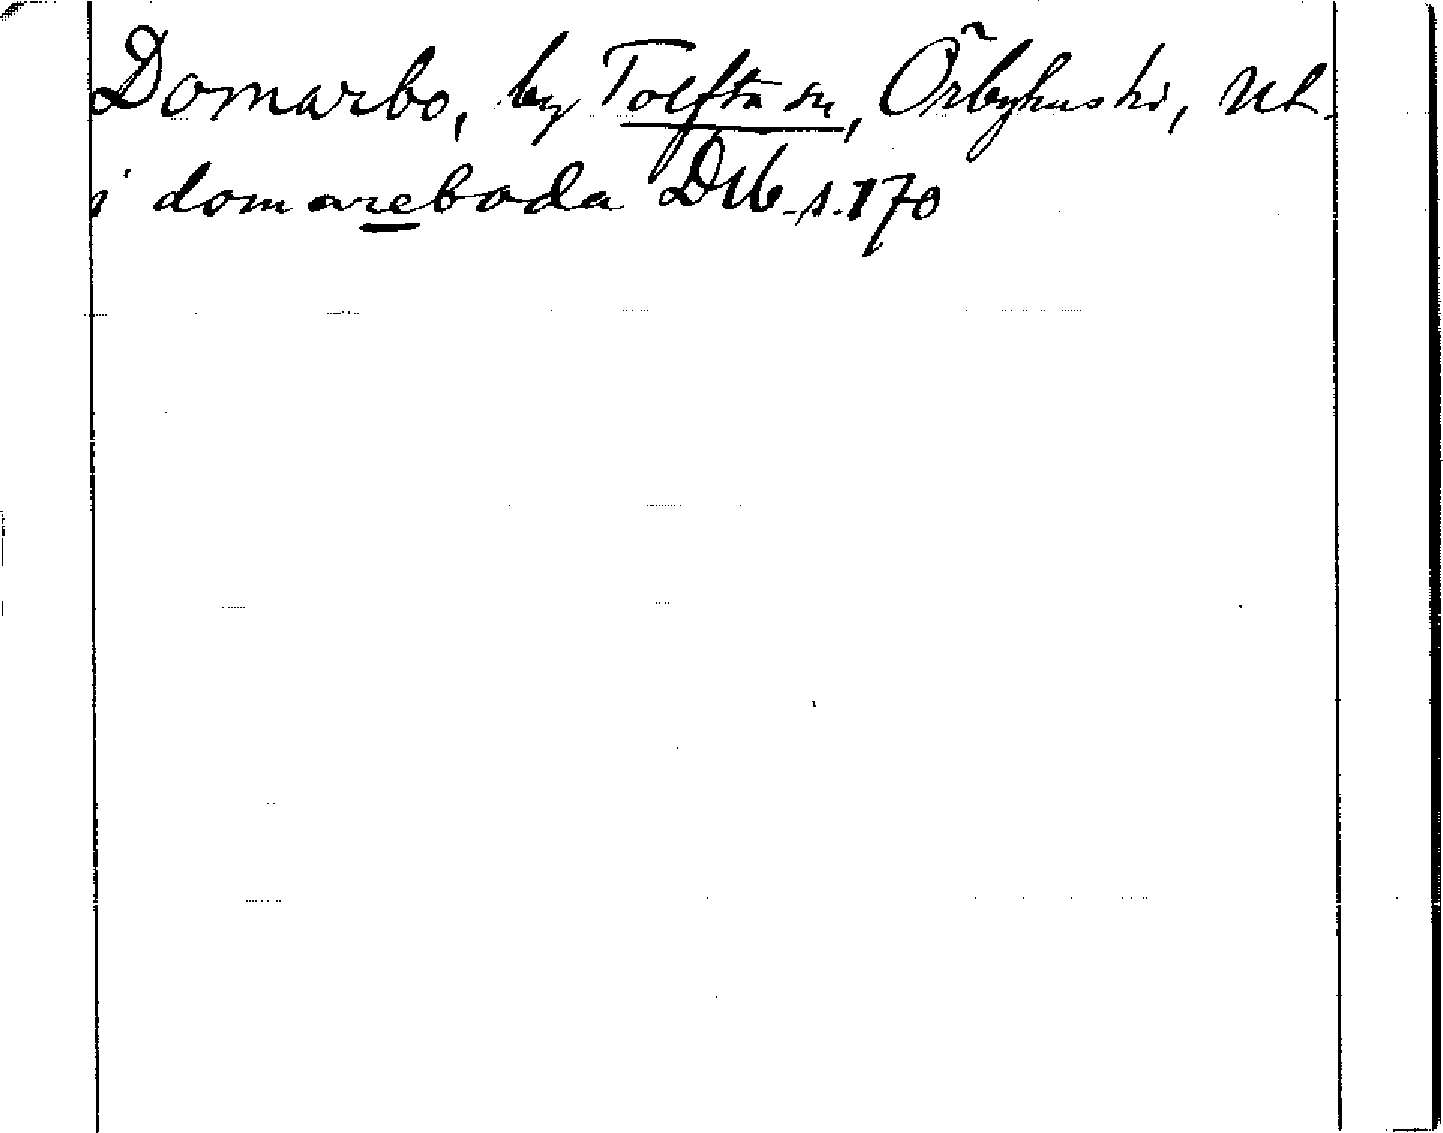 Domarbo, by Tolfta sn, Örbyhus hd, Upl.
i domareboda D16 s. 170